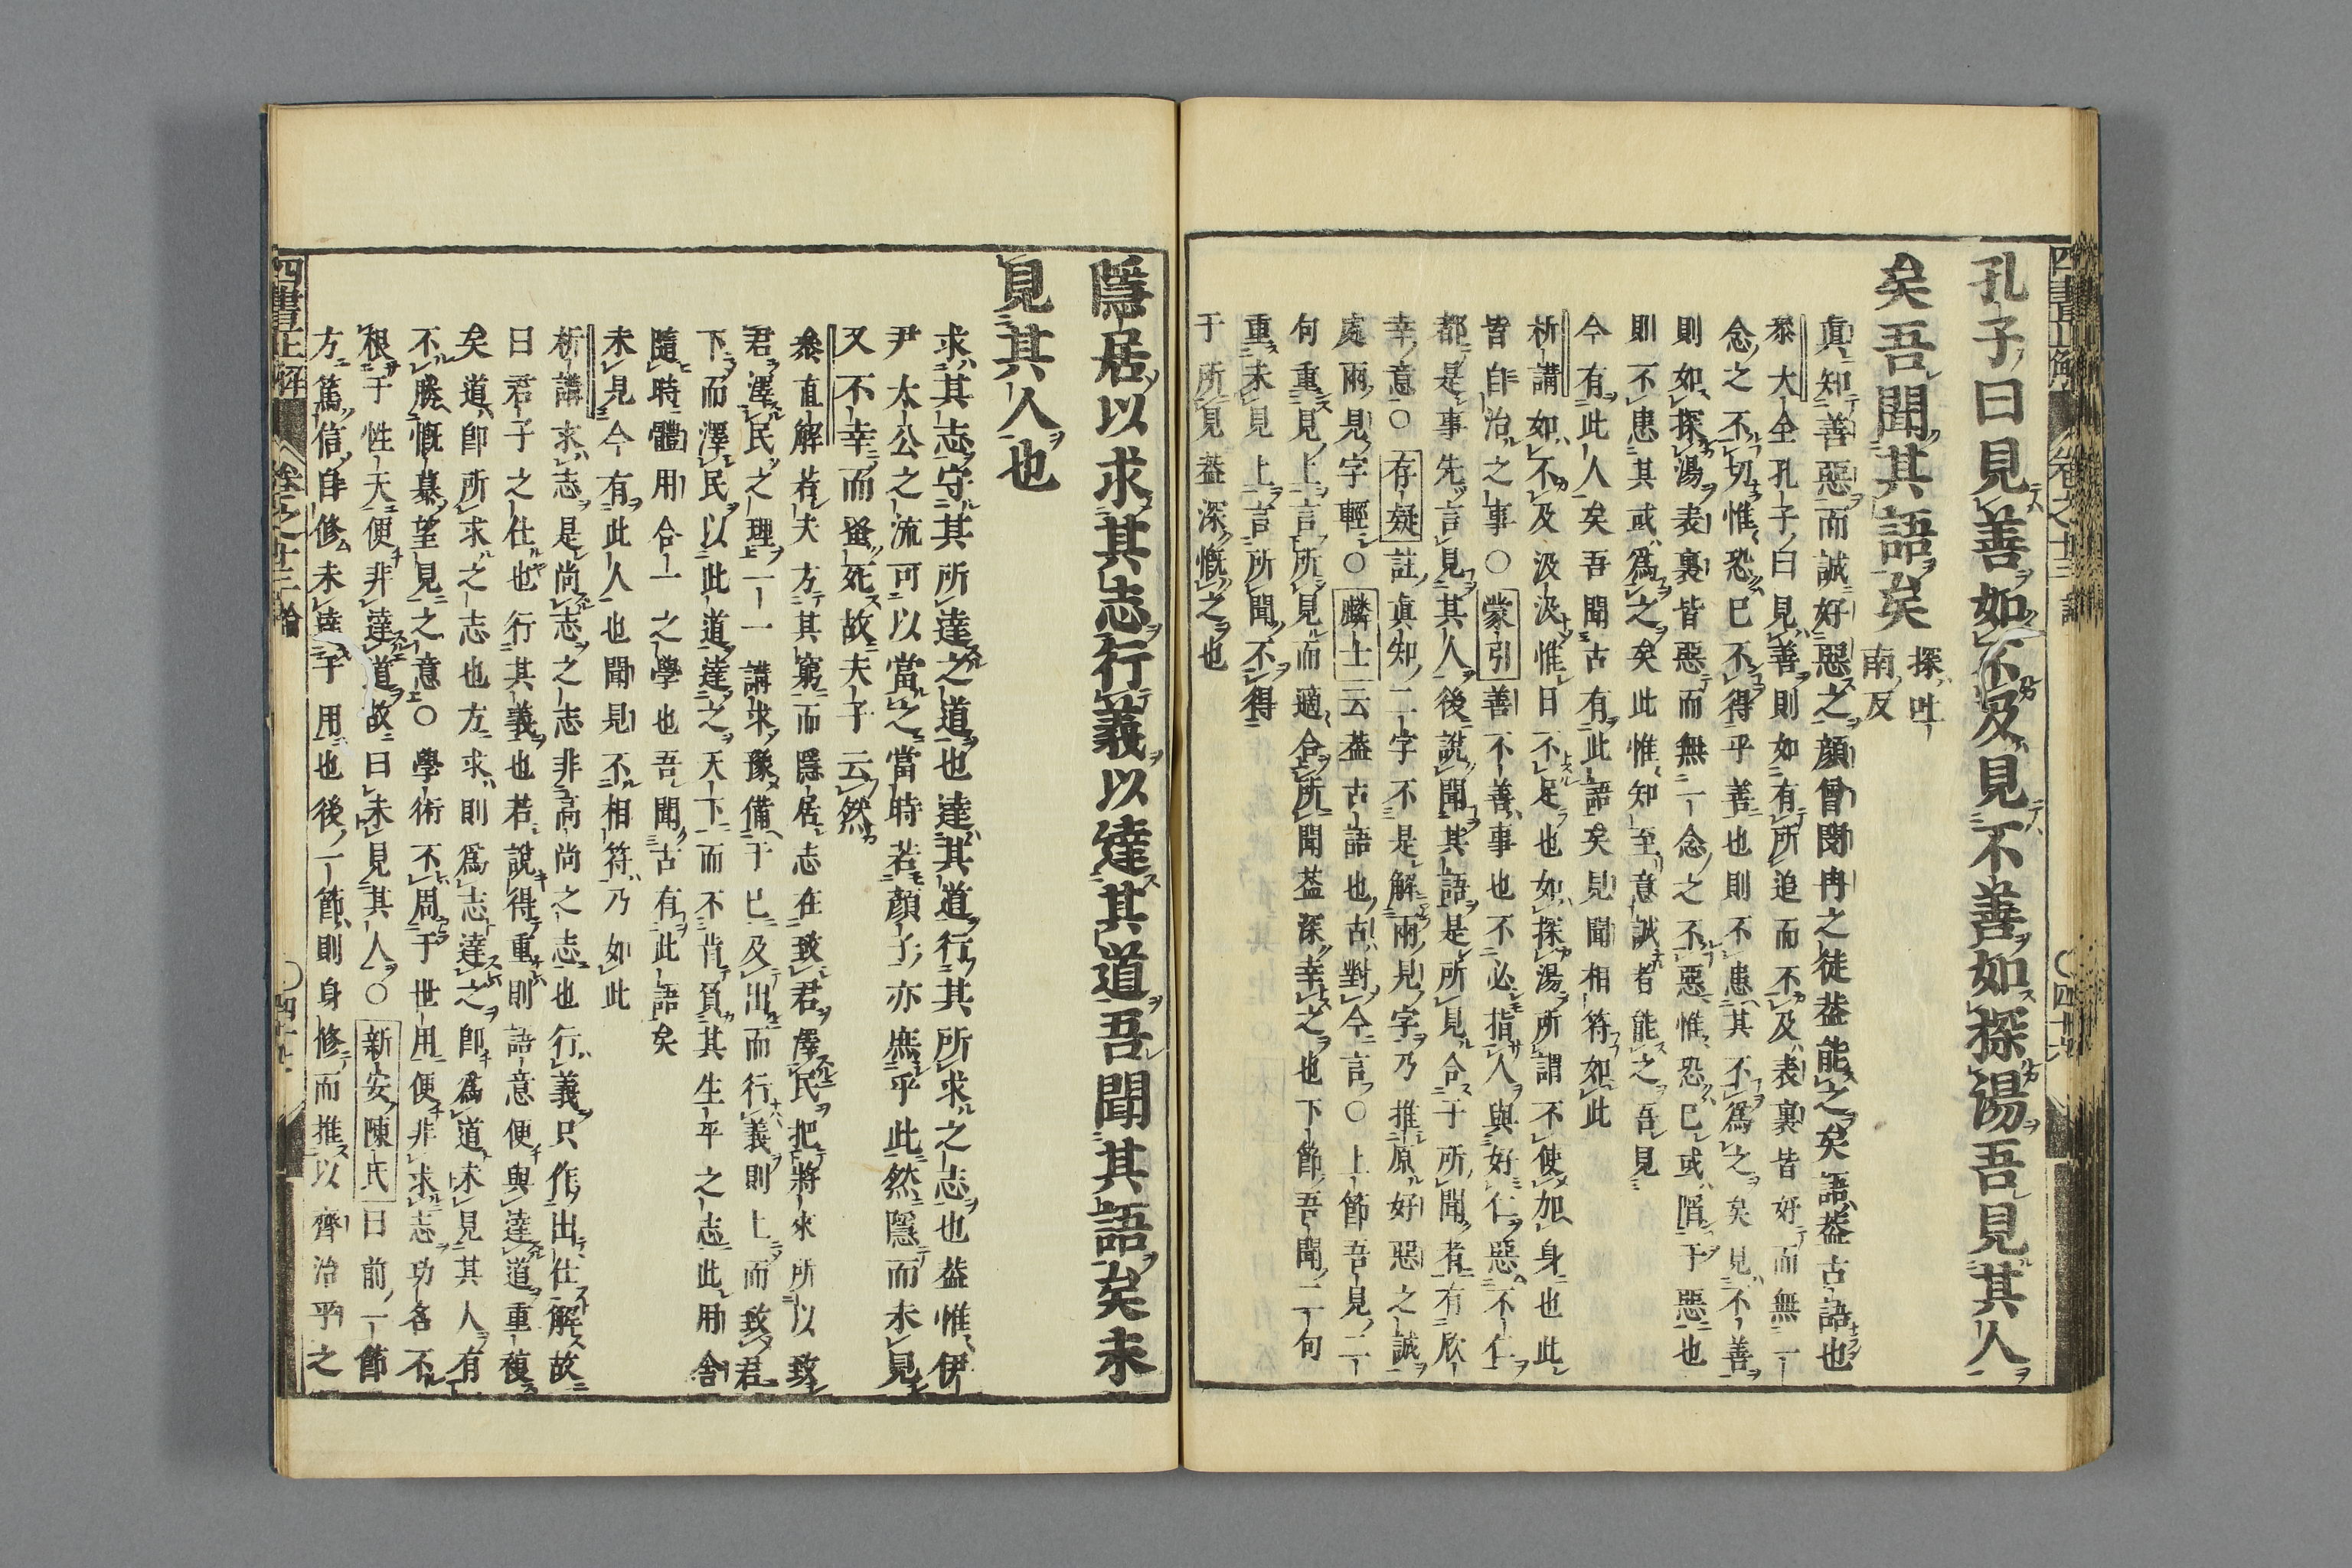 孔子曰見善如不及見不善如探湯吾見其人
矣吾聞其語矣
探吐
南反
眞知善惡而誠好惡之顏曾閔冉之徒葢能之矣語葢古語也
叅大全孔子曰見善則如有所追而不及表裏皆好而無一
念之不切惟恐已不得乎善也則不患其不爲之矣見不善
則如探湯表裏皆惡而無一念之不惡惟恐已或陷于惡也
則不患其或爲之矣此惟知至意誠者能之吾見
今有此人矣吾聞古有此語矣見聞相符如此
析講如不及汲汲惟日不足也如探湯所謂不使加身也此
皆自治之事○蒙引善不善事也不必指人與好仁惡不仁
都是事先言見其人後說聞其語是所見合于所聞者有欣
幸意○存疑註眞知二字不是解兩見字乃推原好惡之誠
處兩見字輕○麟士云葢古語也古對今言○上節吾見二
句重見上言所見而適合所聞葢深幸之也下節吾聞二句
重未見上言所聞不得
于所見葢深慨之也
隱居以求其志行義以達其道吾聞其語矣未
見其人也
求其志守其所達之道也達其道行其所求之志也葢惟伊
尹太公之流可以當之當時若顏子亦庶乎此然隱而未見
又不幸而蚤死故夫子云然
叅直解若夫方其窮而隱居志在致君澤民把將來所以致
君澤民之理一一講求豫備于已及出而行義則上而致君
下而澤民以此道達之天下而不背負其生平之志此用舍
隨時體用合一之學也吾聞古有此語矣
未見今有此人也聞見不相符乃如此
析講求志是尚志之志非高尚之志也行義只作出仕解故
曰君子之仕也行其義也若說得重則語意便與達道重複
矣道卽所求之志也方求則爲志達之卽爲道未見其人有
不勝慨慕望見之意○學術不周于世用便非求志功名不
根于性天便非達道故曰未見其人○新安陳氏曰前一節
方篤信自修未達于用也後一節則身修而推以齊治平之
四書正解
卷之十三論
四書正解
卷之十三論
○四十六